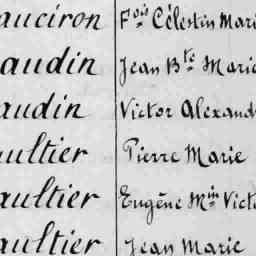 auciron Fois Célestin Mari
audin Jean Bte Marie
audin Victor Alexand
aultier Pierre Marie
aultier Eugène Min Vict
aultier Jean Marie